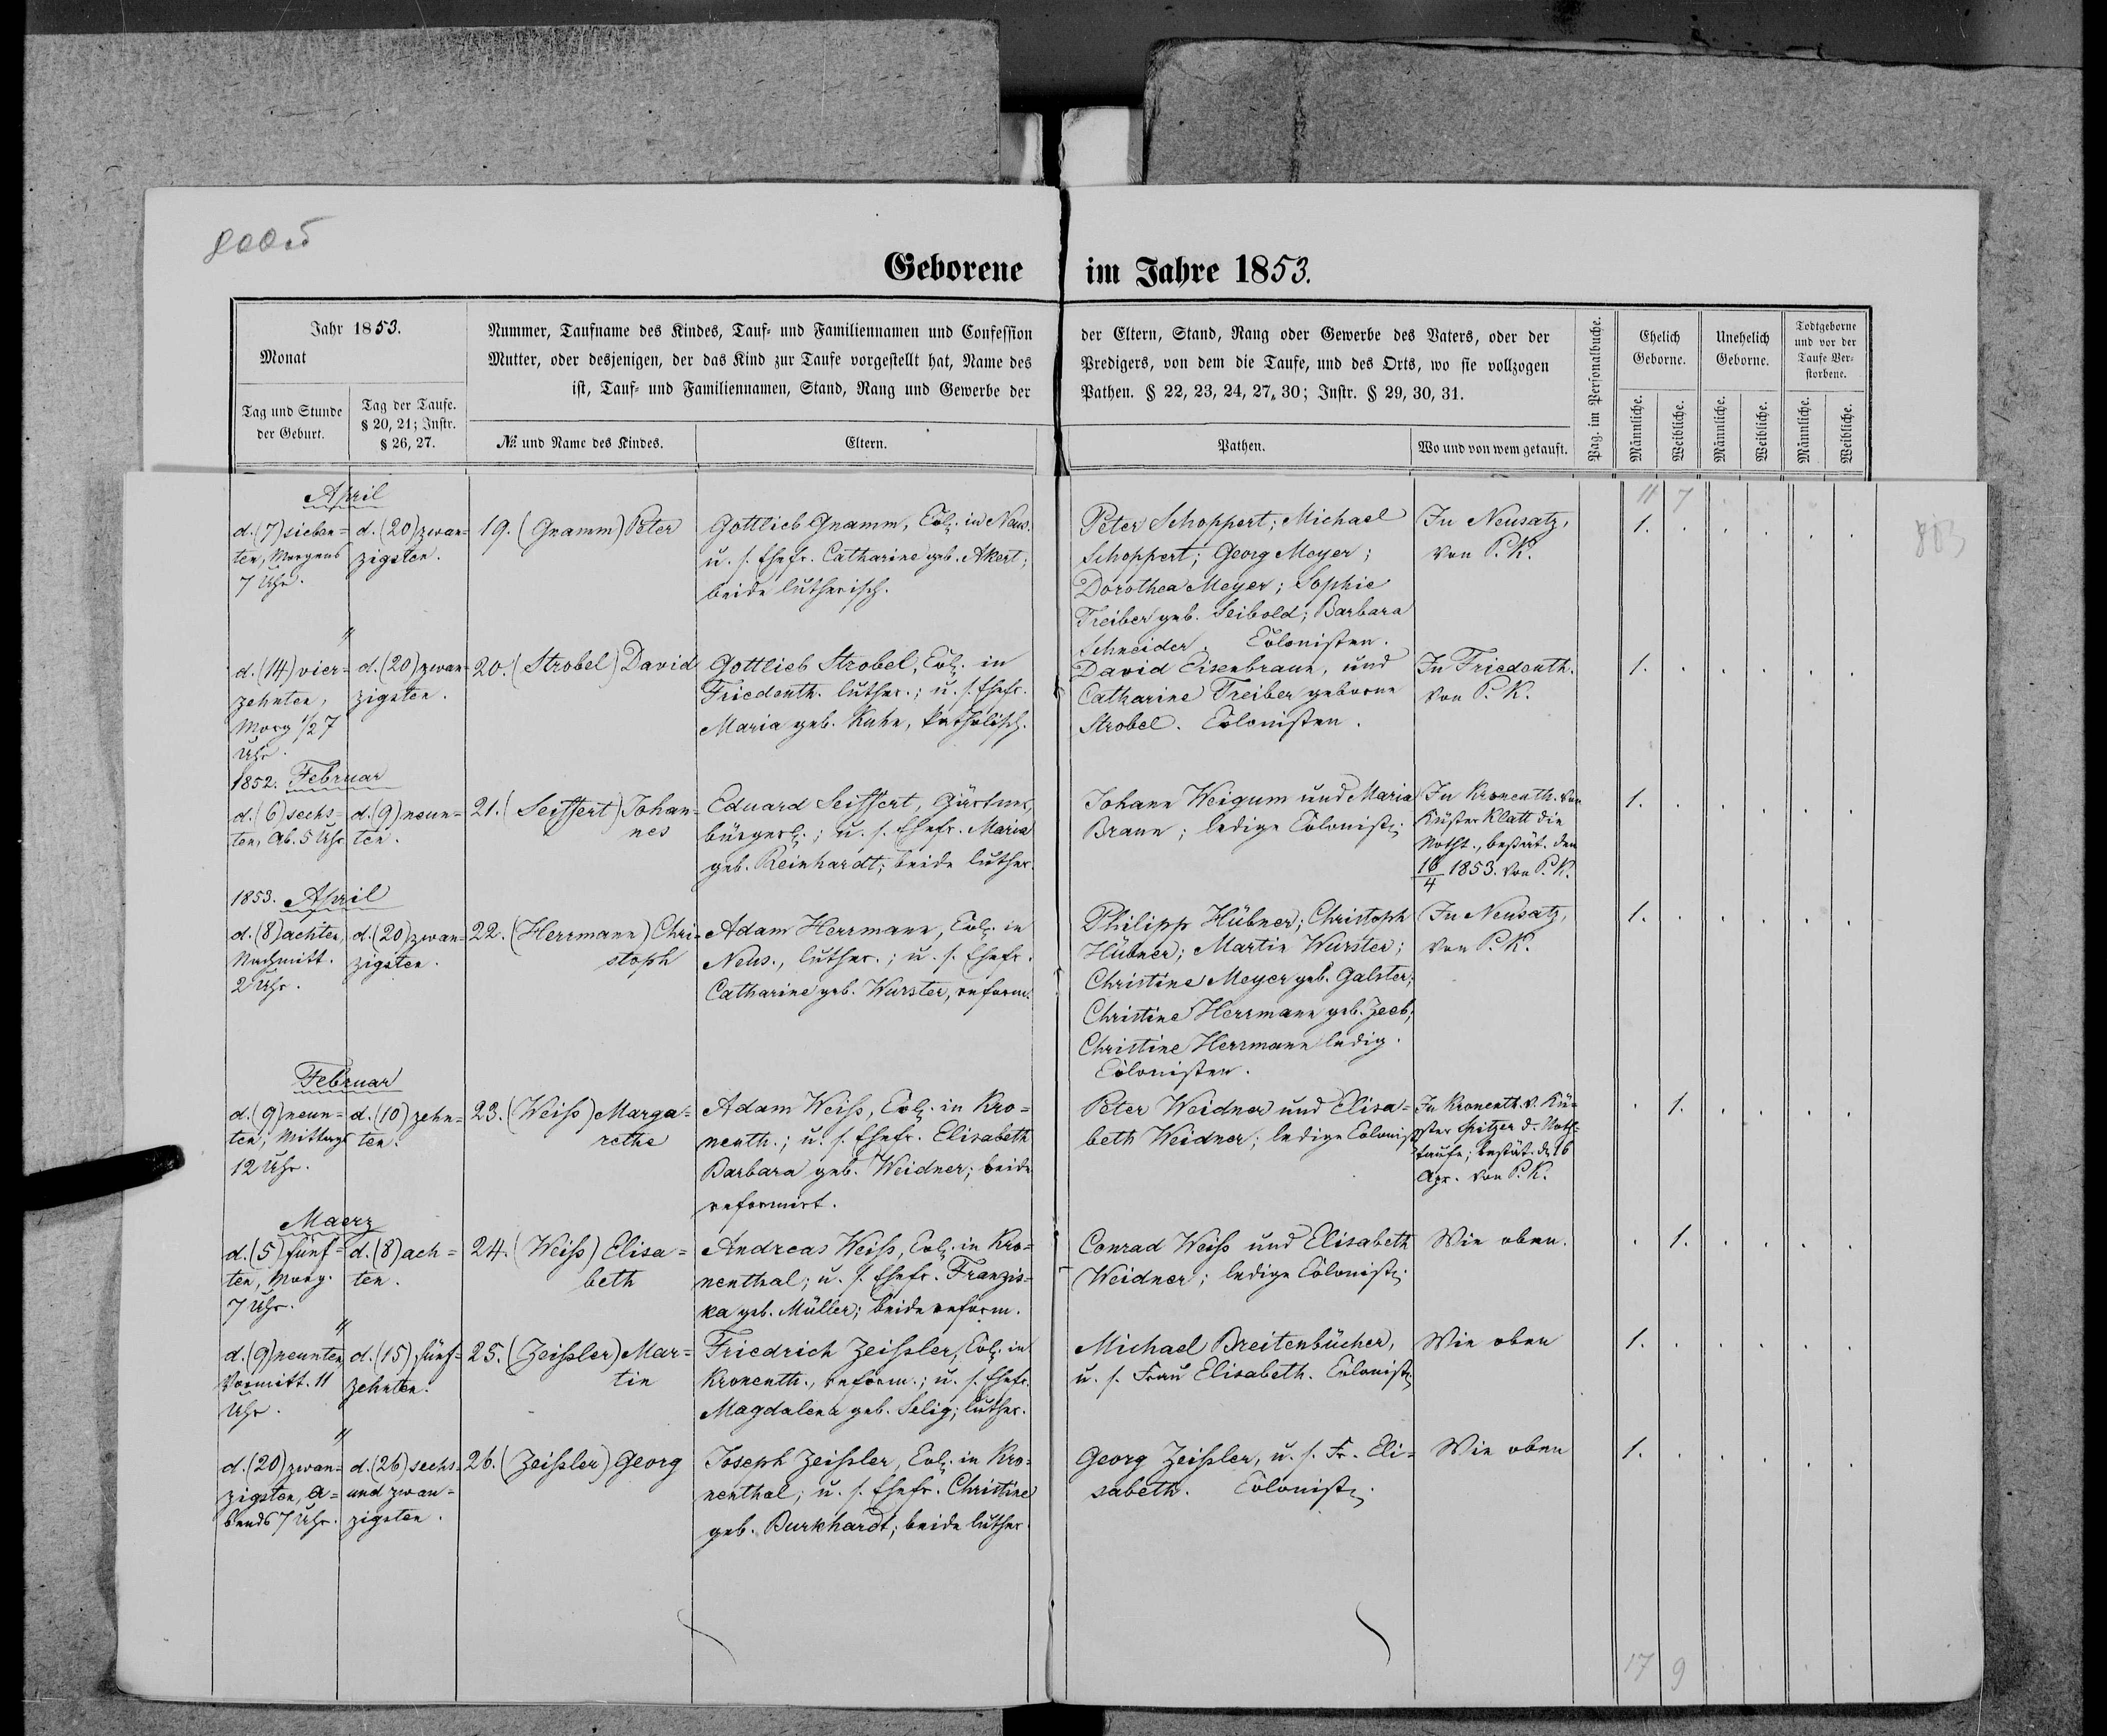 Geborene im Jahre 1853.
Jahr 1853.
Monat
Tag und Stunde der Geburt.
Tag der Taufe. § 20, 21; Instr. § 26, 27.
Nummer, Taufname des Kindes, Tauf- und Familiennamen und Confession der Eltern, Stand, Rang oder Gewerbe des Vaters, oder der
Mutter, oder desjenigen, der das Kind zur Taufe vorgestellt hat, Name des Predigers, von dem die Taufe, und des Orts, wo sie vollzogen
ist, Tauf- und Familiennamen, Stand, Rang und Gewerbe der Pathen. § 22, 23, 24, 27, 30; Instr. § 29, 30, 31.
№ und Name des Kindes.
Eltern.
Pathen.
Wo und von wem getauft.
Pag. im Personalbuche.
Ehelich Geborne.
Unehelich Geborne.
Todtgeborne und vor der Taufe Verstorbene.
Männliche. Weibliche. Männliche. Weibliche. Männliche. Weibliche.
11 7
April
d. (7) sieben=
ten, Morgens
7 Uhr.
d. (20) zwan=
zigsten.
19. (Gnamm) Peter
Gottlieb Gnamm, Col. in Neus.
u. s. Ehefr. Catharine geb. Akert;
beide lutherisch.
Peter Schoppert; Michael
Schoppert; Georg Meyer;
Dorothea Meyer; Sophie
Treiber geb. Seibold; Barbara
Schneider. Colonisten.
In Neusatz,
von P. K.
1.
"
d. (14) vier=
zehnten,
Morg 1/2 7
Uhr.
d. (20) zwan=
zigsten.
20. (Strobel) David
Gottlieb Strobel, Col. in
Friedenth. luther.; u. s. Ehefr.
Maria geb. Kuhn, katholisch.
David Eisenbraun, und
Catharine Treiber geborne
Strobel. Colonisten.
In Friedenth.
von P. K.
1.
1852. Februar
d. (6) sechs=
ten, Ab. 5 Uhr
d. (9) neun=
ten.
21. (Seiffert) Johan=
nes
Eduard Seiffert, Gärtner,
bürgerl.; u. s. Ehefr. Maria
geb. Reinhardt; beide luther.
Johann Weigum und Maria
Braun; ledige Colonist.
In Kronenth. von
Küster Klatt die
Notht., bestät. den
16/4 1853. von P. K.
1.
1853. April
d. (8) achten,
Nachmitt.
2 Uhr.
d. (20) zwan=
zigsten.
22. (Herrmann) Chri=
stoph
Adam Herrmann, Col. in
Neus., luther.; u. s. Ehefr.
Catharine geb. Wurster, reform.
Philipp Hübner; Christoph
Hübner; Martin Wurster;
Christine Meyer geb. Galster;
Christine Herrmann geb. Zeeb;
Christine Herrmann ledig.
Colonisten.
In Neusatz,
von P. K.
1.
Februar
d. (9) neun=
ten, Mittags
12 Uhr.
d. (10) zehn=
ten.
23. (Weiß) Marga=
rethe
Adam Weiß, Col. in Kro=
nenth.; u. s. Ehefr. Elisabeth
Barbara geb. Weidner; beide
reformirt.
Peter Weidner und Elisa=
beth Weidner; ledige Colonist
In Kronenth. v. Kü=
ster Spitzer d. Noth=
taufe; bestät. d. 16
Apr. von P. K.
1.
Maerz
d. (5) fünf=
ten, Morg.
7 Uhr.
d. (8) ach=
ten.
24. (Weiß) Elisa=
beth
Andreas Weiß, Col. in Kro=
nenthal; u. s. Ehefr. Franzis=
ka geb. Müller; beide reform.
Conrad Weiß und Elisabeth
Weidner; ledige Colonist.
Wie oben.
1.
"
d. (9) neunten,
Vormitt. 11
Uhr.
d. (15) fünf=
zehnten.
25. (Zeißler) Mar=
tin
Friedrich Zeißler, Col. in
Kronenth., reform.; u. s. Ehefr.
Magdalena geb. Selig; luther.
Michael Breitenbücher,
u. s. Frau Elisabeth. Colonist.
Wie oben
1.
"
d. (20) zwan=
zigsten, A=
bends 7 Uhr.
d. (26) sechs
und zwan=
zigsten.
26. (Zeißler) Georg
Joseph Zeißler, Col. in Kro=
nenthal; u. s. Ehefr. Christine
geb. Burkhardt; beide luther.
Georg Zeißler, u. s. Fr. Eli=
sabeth. Colonist.
Wie oben
1.
17 9